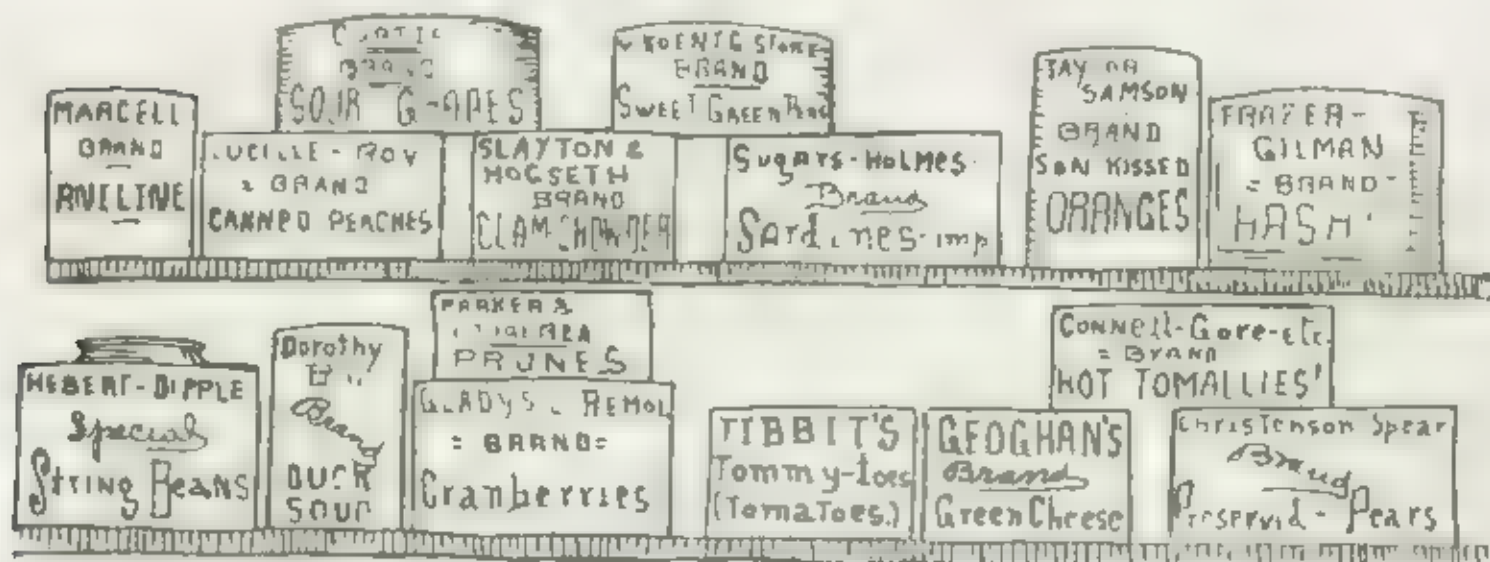 MARCELL
BRAND
ANILINE
BRAND
SOUR GRAPES
LUCILLE - ROY
= BRAND
CANNED PEACHES
SLAYTON &
HOGSETH
BRAND
CLAM CHOWDER
KOENIG STORE
BRAND
SWEET GREEN
Sugars-Holmes
Brand
Sardines-imp
TAYLOR
SAMSON
BRAND
SON KISSED
ORANGES
FRAZER-
GILMAN
= BRAND-
HASH
HEBERT-DIPPLE
Special
String Beans
Dorothy
Brand
DUCK
SOUP
PARKER &
PRUNES
GLADYS REMOL
= BRAND=
Cranberries
TIBBIT'S
Tommy-toes
(Tomatoes.)
GEOGHAN'S
Brand
Green Cheese
Connell-Gore-etc.
= BRAND
HOT TOMALLIES'
Christenson Spear
Brand
Preservid - Pears